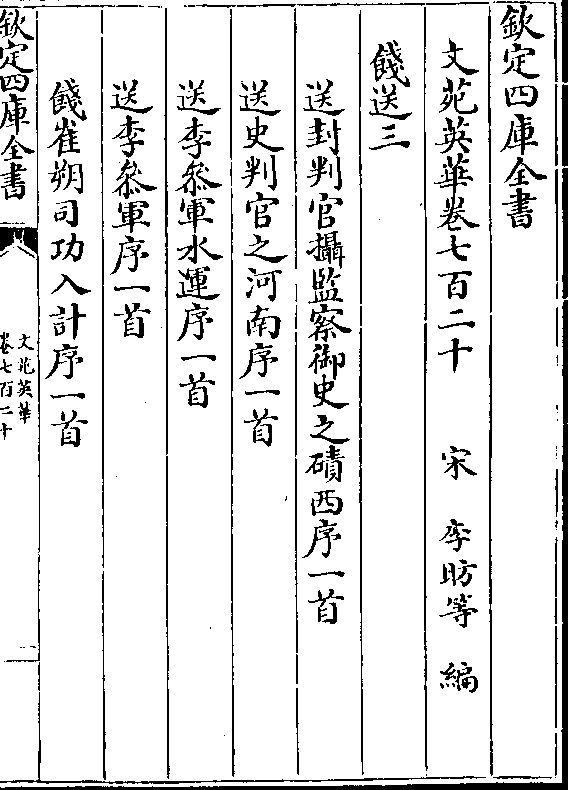 欽定四庫全書
文苑英華卷七百二十 宋 李昉等 編
餞送三
送封判官攝監察御史之磧西序一首
送史判官之河南序一首
送李叅軍水運序一首
送李叅軍序一首
餞崔朔司功入計序一首
欽定四庫全書
文苑英華
卷七百二十
一